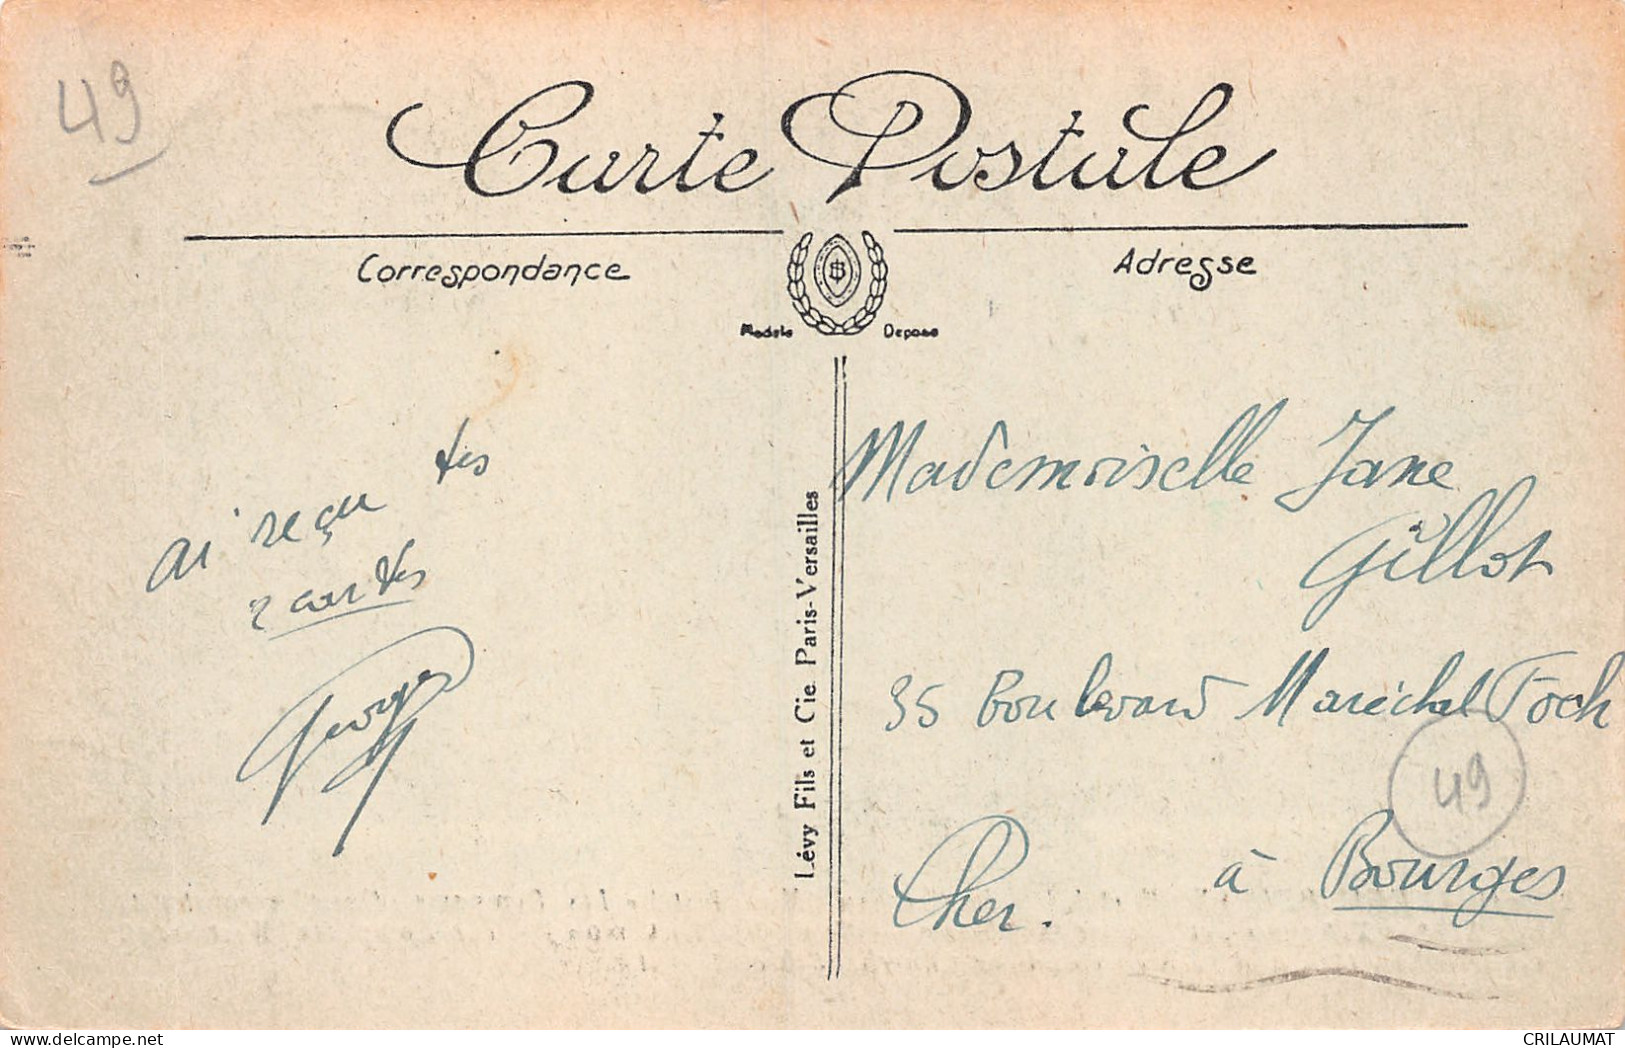 49
Carte Postale
Correspondance
Adresse
Modèle Déposé
ai reçu tes
2 cartes
Georges
Lévy Fils et Cie. Paris-Versailles
Mademoiselle Jane
Gillot
35 Boulevard Maréchal Foch
49
à Bourges
Cher.
CRILAUMAT